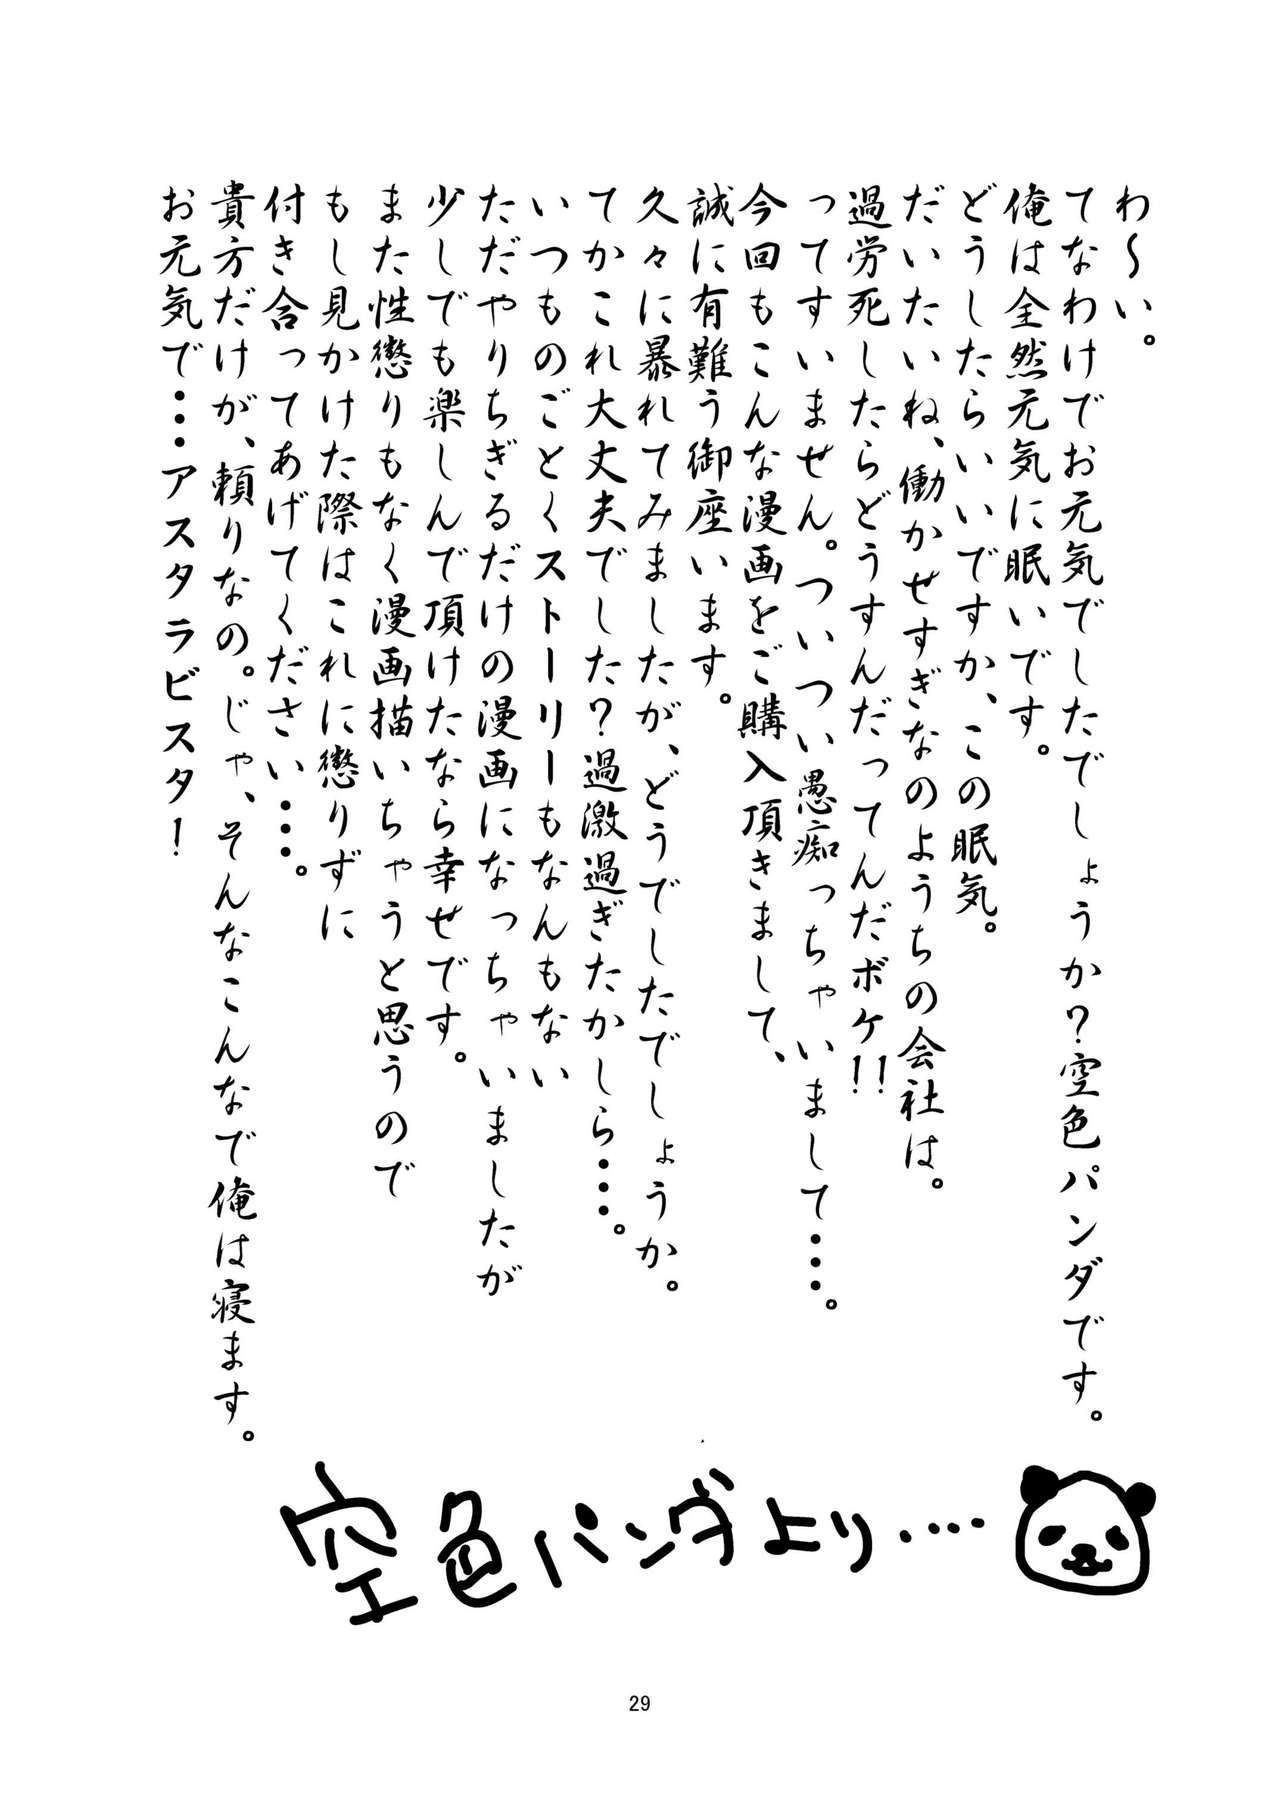 わ～い。
てなわけでお元気でしたでしょうか？空色パンダです。
俺は全然元気に眠いです。
どうしたらいいですか、この眠気。
だいたいね、働かせすぎなのようちの会社は。
過労死したらどうすんだってんだボケ!!
ってすいません。ついつい愚痴っちゃいまして･･･。
今回もこんな漫画をご購入頂きまして、
誠に有難う御座います。
久々に暴れてみましたが、どうでしたでしょうか。
てかこれ大丈夫でした？過激過ぎたかしら･･･。
いつものごとくストーリーもなんもない
ただやりちぎるだけの漫画になっちゃいましたが
少しでも楽しんで頂けたなら幸せです。
また性懲りもなく漫画描いちゃうと思うので
もし見かけた際はこれに懲りずに
付き合ってあげてください･･･。
貴方だけが、頼りなの。じゃ、そんなこんなで俺は寝ます。
お元気で･･･アスタラビスタ！
空色パンダより････
29